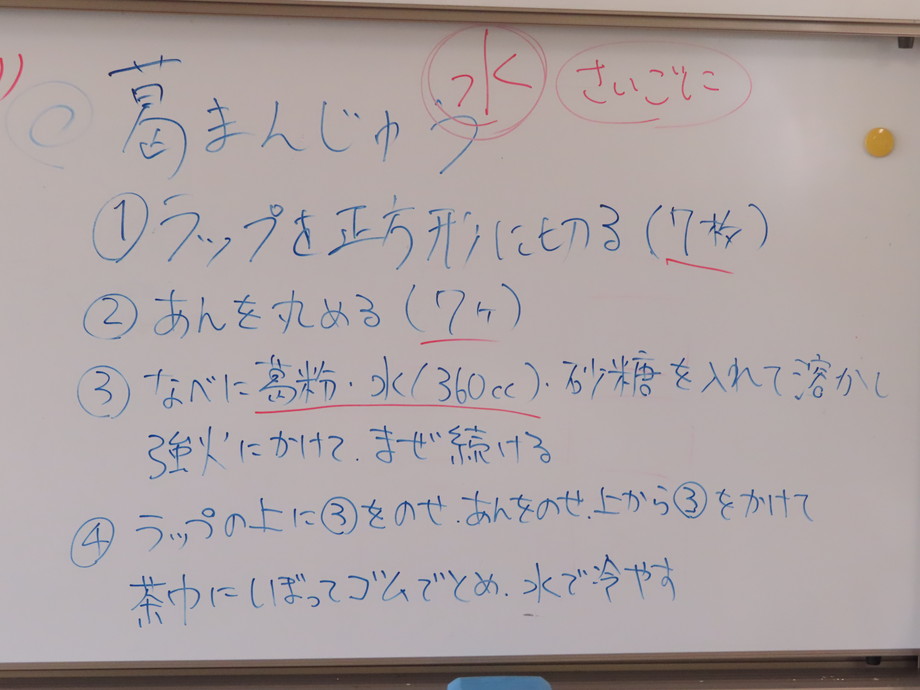 水 さいごに
葛まんじゅう
① ラップを正方形に切る(7枚)
② あんを丸める(7ヶ)
③ なべに葛粉・水(360cc)・砂糖を入れて溶かし
強火にかけて、まぜ続ける
④ ラップの上に③をのせ、あんをのせ、上から③をかけて
茶巾にしぼってゴムでとめ、水で冷やす